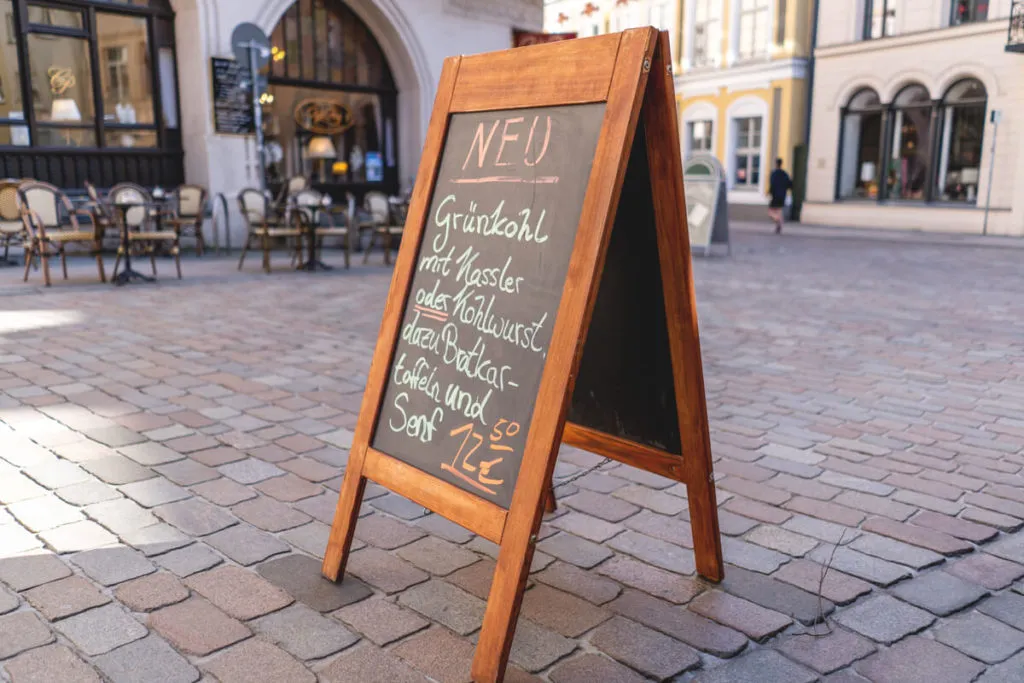 NEU
Grünkohl
mit Kassler
oder Kohlwurst,
dazu Bratkar-
toffeln und
Senf
12 50 €